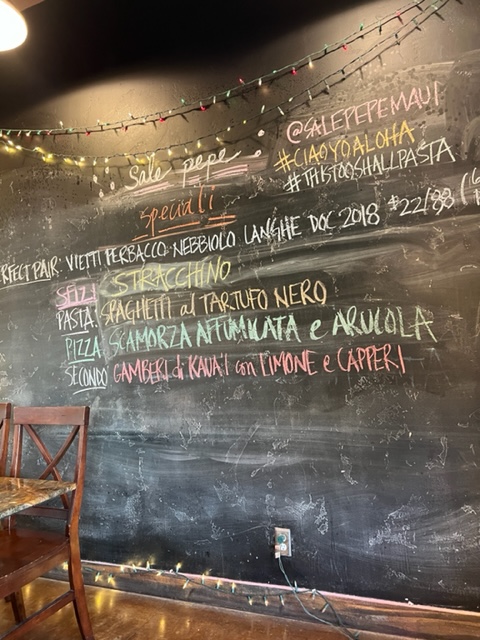 @SALEPEPEMAUI
#CIAOYOALOHA
#THISTOOSHALLPASTA
Sale pepe
speciali
RFECT PAIR: VIETTI PERBACCO NEBBIOLO LANGHE DOC 2018 $22/88
SFIZI STRACCHINO
PASTA: SPAGHETTI al TARTUFO NERO
PIZZA SCAMORZA AFFUMICATA e ARUCOLA
SECONDO GAMBERI di KAUA'I con LIMONE e CAPPERI